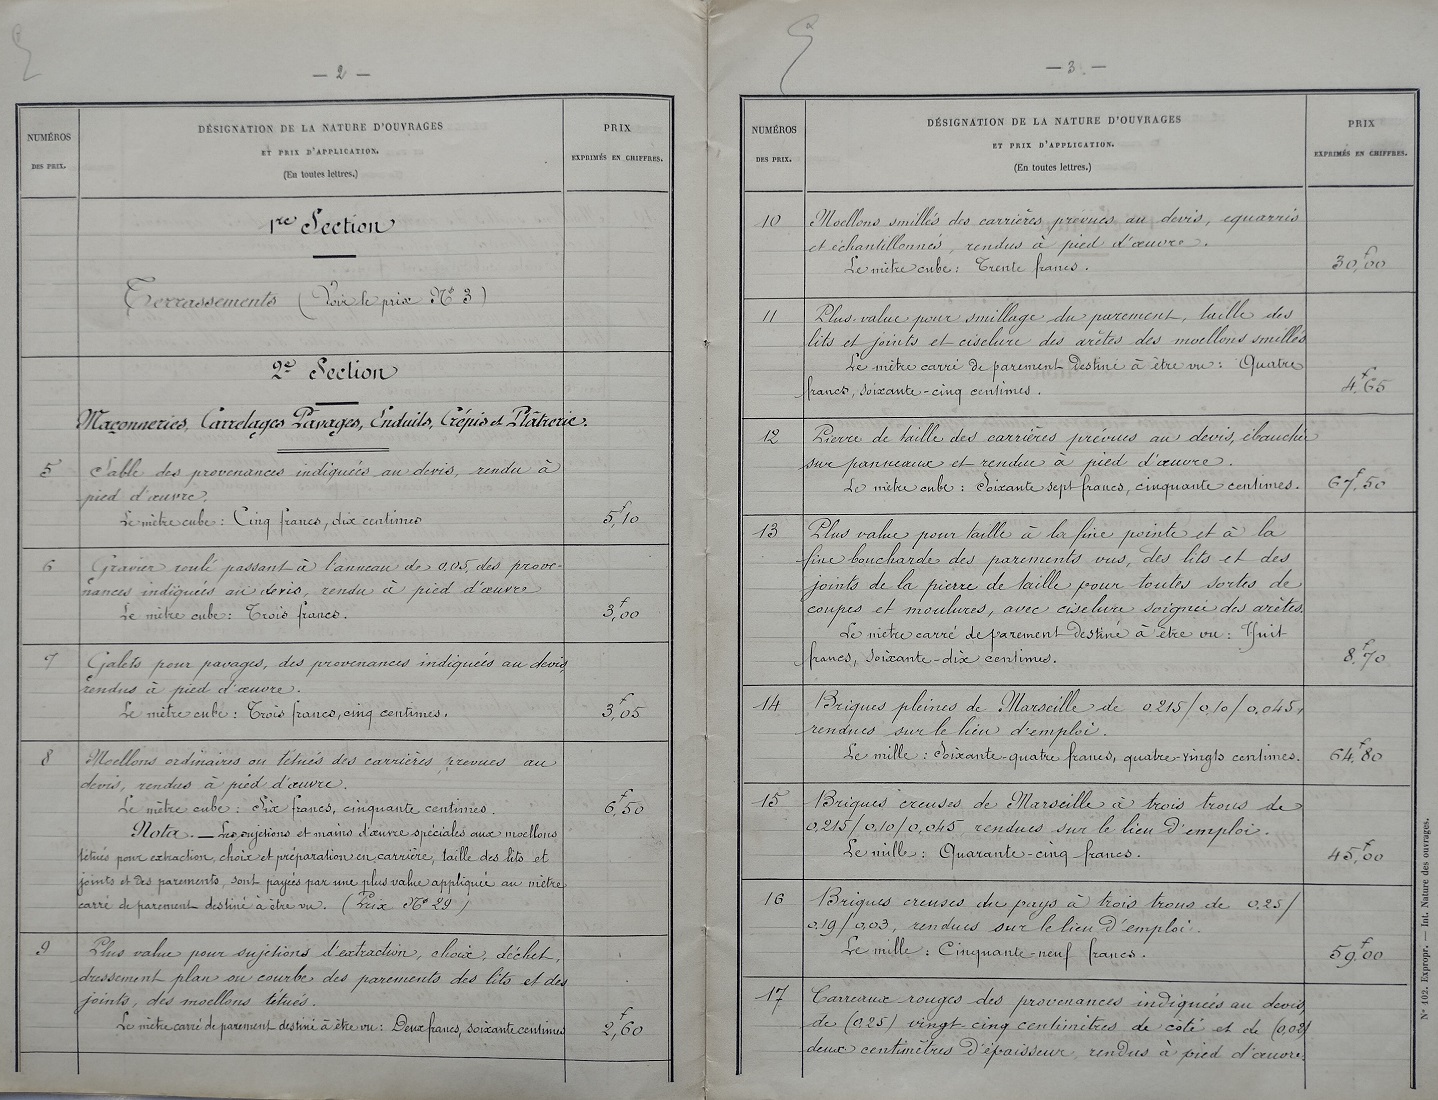 — 2 —
NUMÉROS
DES PRIX.
DÉSIGNATION DE LA NATURE D'OUVRAGES
ET PRIX D'APPLICATION.
(En toutes lettres.)
PRIX
EXPRIMÉS EN CHIFFRES.
1re Section
Terrassements (Voir le prix No 3)
2e Section
Maçonneries, Carrelages Pavages, Enduits, Crépis et Plâtrerie.
5 Sable des provenances indiquées au devis, rendu à
pied d'œuvre.
Le mètre cube : Cinq francs, dix centimes 5f,10
6 Gravier roulé passant à l'anneau de 0,05, des prove-
nances indiquées au devis, rendu à pied d'œuvre
Le mètre cube : Trois francs. 3f,00
7 Galets pour pavages, des provenances indiquées au devis,
rendus à pied d'œuvre.
Le mètre cube : Trois francs, cinq centimes. 3f,05
8 Moellons ordinaires ou têtués des carrières prévues au
devis, rendus à pied d'œuvre.
Le mètre cube : Six francs, cinquante centimes. 6f,50
Nota. — Les sujétions et mains d'œuvre spéciales aux moellons
têtués pour extraction, choix et préparation en carrière, taille des lits et
joints et des parements, sont payés par une plus value appliquée au mètre
carré de parement destiné à être vu. (Prix No 29)
9 Plus value pour sujétions d'extraction, choix, déchet,
dressement plan ou courbe des parements des lits et des
joints, des moellons têtués.
Le mètre carré de parement destiné à être vu : Deux francs, soixante centimes 2f,60
— 3 —
NUMÉROS
DES PRIX.
DÉSIGNATION DE LA NATURE D'OUVRAGES
ET PRIX D'APPLICATION.
(En toutes lettres.)
PRIX
EXPRIMÉS EN CHIFFRES.
10 Moellons smillés des carrières prévues au devis, équarris
et échantillonnés, rendus à pied d'œuvre.
Le mètre cube : Trente francs. 30f,00
11 Plus-value pour smillage du parement, taille des
lits et joints et ciselure des arêtes des moellons smillés
Le mètre carré de parement destiné à être vu : Quatre
francs, soixante-cinq centimes. 4f,65
12 Pierre de taille des carrières prévues au devis, ébauchée
sur panneaux et rendue à pied d'œuvre.
Le mètre cube : Soixante sept francs, cinquante centimes. 67f,50
13 Plus value pour taille à la fine pointe et à la
fine boucharde des parements vus, des lits et des
joints de la pierre de taille pour toutes sortes de
coupes et moulures, avec ciselure soignée des arêtes
Le mètre carré de parement destiné à être vu : Huit
francs, soixante-dix centimes. 8f,70
14 Briques pleines de Marseille de 0,215/0,10/0,045,
rendues sur le lieu d'emploi.
Le mille : Soixante-quatre francs, quatre-vingts centimes. 64f,80
15 Briques creuses de Marseille à trois trous de
0,215/0,10/0,045 rendues sur le lieu d'emploi.
Le mille : Quarante-cinq francs. 45f,00
16 Briques creuses du pays à trois trous de 0,25/
0,19/0,03, rendues sur le lieu d'emploi.
Le mille : Cinquante-neuf francs. 59f,00
17 Carreaux rouges des provenances indiquées au devis,
de (0,25) vingt cinq centimètres de côté et de (0,02)
deux centimètres d'épaisseur, rendus à pied d'œuvre.
No 102. Expropr. — Int. Nature des ouvrages.